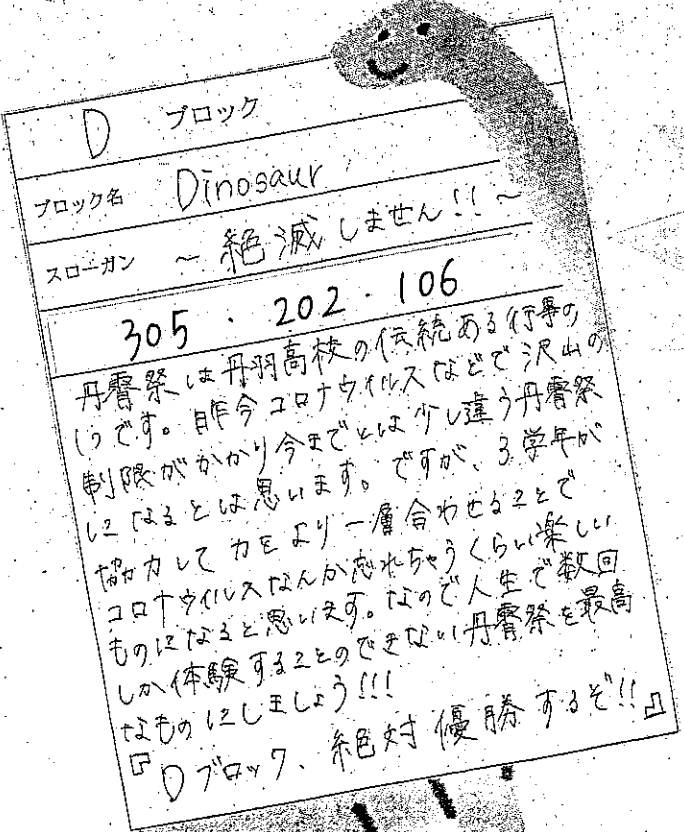 D ブロック
ブロック名 Dinosaur
スローガン ～絶滅しません!!～
305・202・106
丹霄祭は丹羽高校の伝統ある行事の
1つです。昨今コロナウイルスなどで沢山の
制限がかかり今までとは少し違う丹霄祭
になるとは思います。ですが、3学年が
協力して力をより一層合わせることで
コロナウイルスなんか忘れちゃうくらい楽しい
ものになると思います。なので人生で数回
しか体験することのできない丹霄祭を最高
なものにしましょう!!!
『Dブロック、絶対優勝するぞ!!』